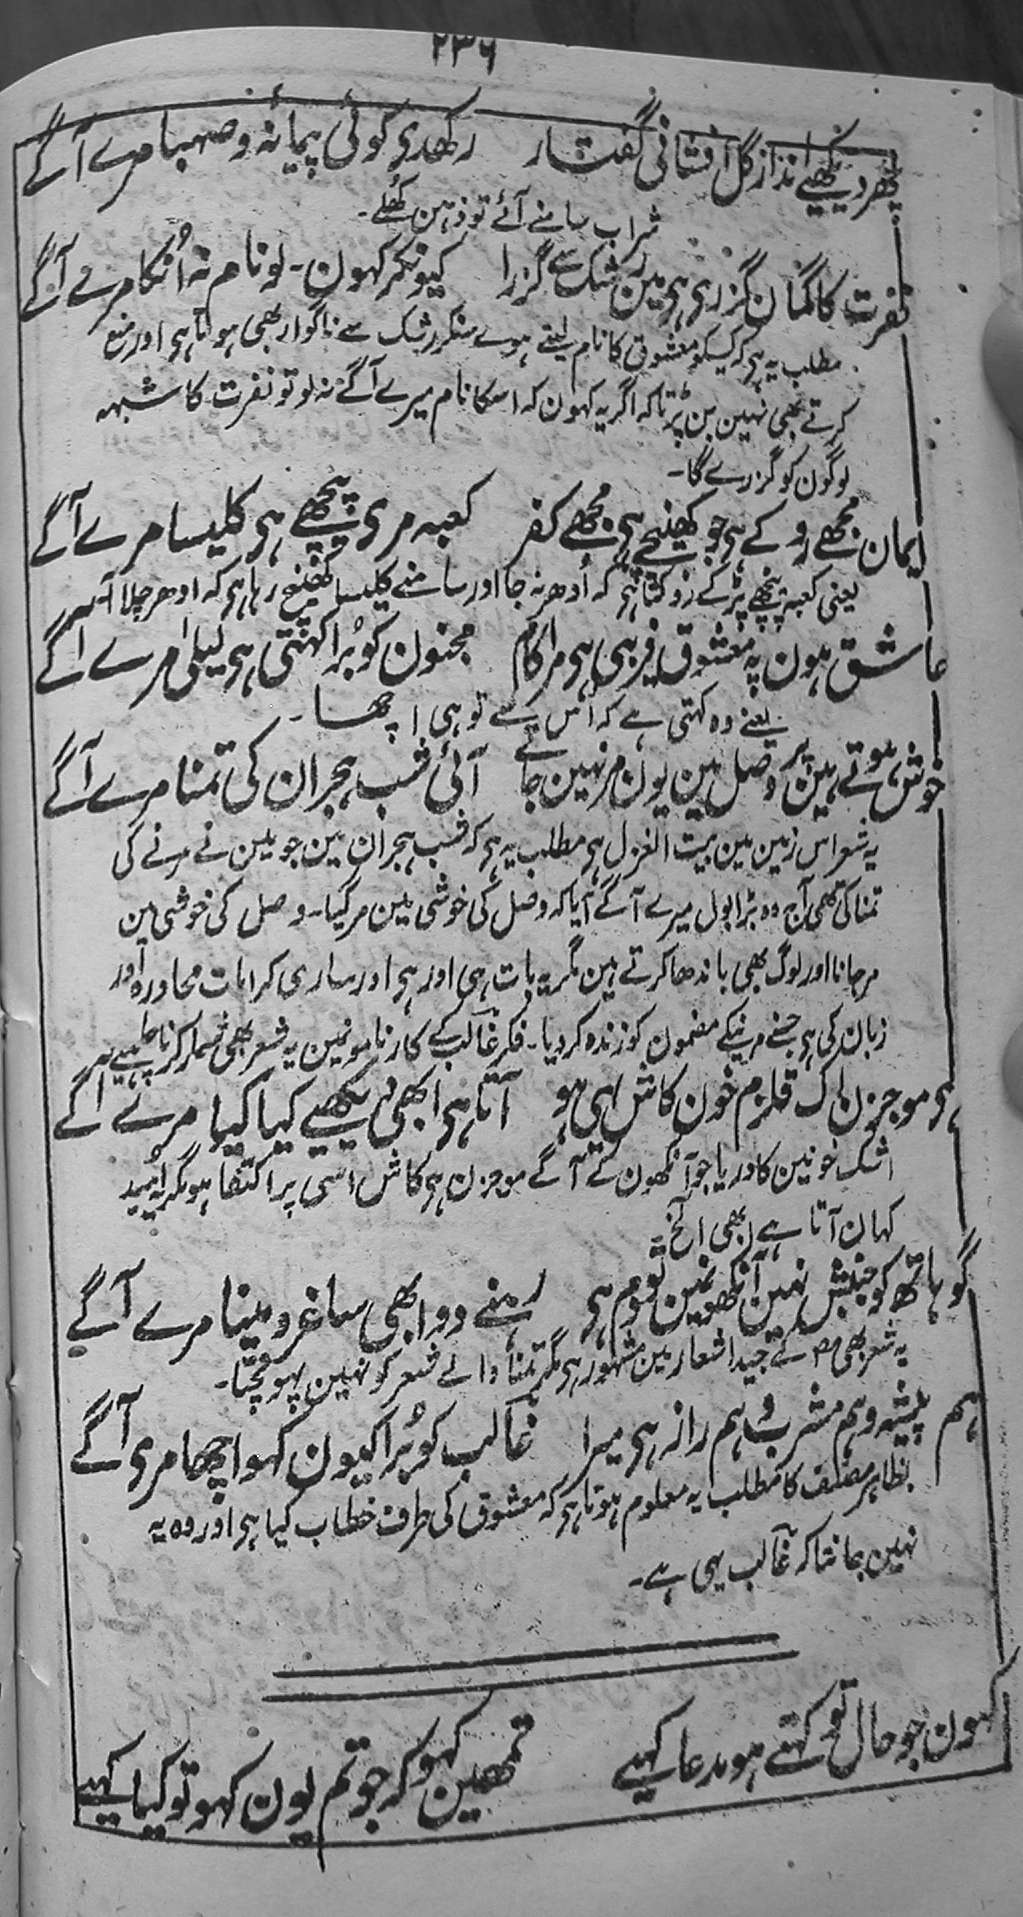 ۲۳۶
پھر دیکھیے انداز گل افشانی گفتار رکھدی کوئی پیمانہ و صہبا مرے آگے
شراب سامنے آئے تو ذہن کھُلے۔
نفرت کا گمان گزری ہی مین رشک سے گزرا کیونکر کہون۔ لو نام نہ اُنکا مرے آگے
مطلب یہ ہر کہ کسیکو معشوق کا نام لیتے ہوے سنکر رشک سے ناگوار بھی ہوتا ہی اور منع
کرتے بھی نہین بن پڑتا کہ اگر یہ کہون کہ اسکا نام میرے آگے نہ لو تو نفرت کا شبہہ
لوگون کو گزرے گا۔
ایمان مجھے روکے ہی جو کھینچے ہی مجھے کفر کعبہ مری پیچھے ہی کلیسا مرے آگے
یعنی کعبہ پیچھے پڑکے روکتا ہی کہ اُدھر نہ جا اور سامنے کلیسا کھینچ رہا ہی کہ ادھر چلا آ۔
عاشق ہون پہ معشوق فریبی ہی مرا کام مجنون کو بُرا کہتی ہی لیلیٰ مرے آگے
یعنے وہ کہتی ہے کہ اُس سے تو ہی اچھا۔
خوش ہوتے ہین پر وصل مین یون مر نہین جاتے آئی شب ہجران کی تمنا مرے آگے
یہ شعر اس زمین مین بیت الغزل ہی مطلب یہ ہی کہ شب ہجران مین جو مین نے مرنے کی
تمنا کی تھی آج وہ بڑا بول میرے آگے آیا کہ وصل کی خوشی مین مر گیا۔ وصل کی خوشی مین
مرجانا اور لوگ بھی باندھا کرتے ہین مگر یہ بات ہی اور ہی اور ساری کرامات محاورہ اور
زبان کی ہی جسنے مرنیکے مضمون کو زندہ کر دیا۔ فکر غالب کے کارنامونمین یہ شعر بھی شمار کرنا چاہیے
ہی موجزن اک قلزم خون کاش یہی ہو آتا ہی ابھی دیکھیے کیا کیا مرے آگے
اشک خونین کا دریا جو آنکھون کے آگے موجزن ہی کاش اسی پر اکتفا ہو مگر یہ امید
کہان آتا ہے ابھی الخ
گو ہاتھ کو جنبش نہین آنکھونمین تو دم ہی رہنے دو ابھی ساغر و مینا مرے آگے
یہ شعر بھی مصؔ کے جید اشعار مین مشہور ہی مگر تمنا والے شعر کو نہین پہونچتا۔
ہم پیشہ و ہم مشرب و ہم راز ہی میرا غالب کو بُرا کیون کہو اچھا مری آگے
بظاہر مصنف کا مطلب یہ معلوم ہوتا ہی کہ معشوق کی طرف خطاب کیا ہی اور وہ یہ
نہین جانتا کہ غالب یہی ہے۔
کہون جو حال تو کہتے ہو مدعا کہیے تمھین کہو کہ جو تم یون کہو تو کیا کہیے